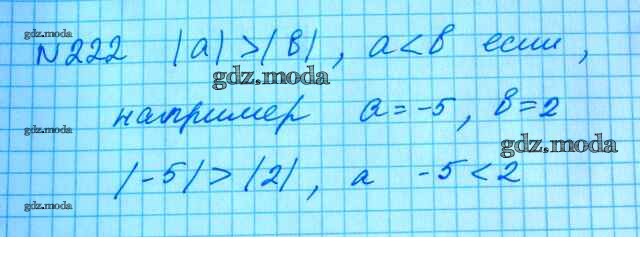 gdz.moda
№222 |a|>|b|, a<b если,
gdz.moda
gdz.moda
например a=-5, b=2
gdz.moda
|-5|>|2|, а -5<2
gdz.moda